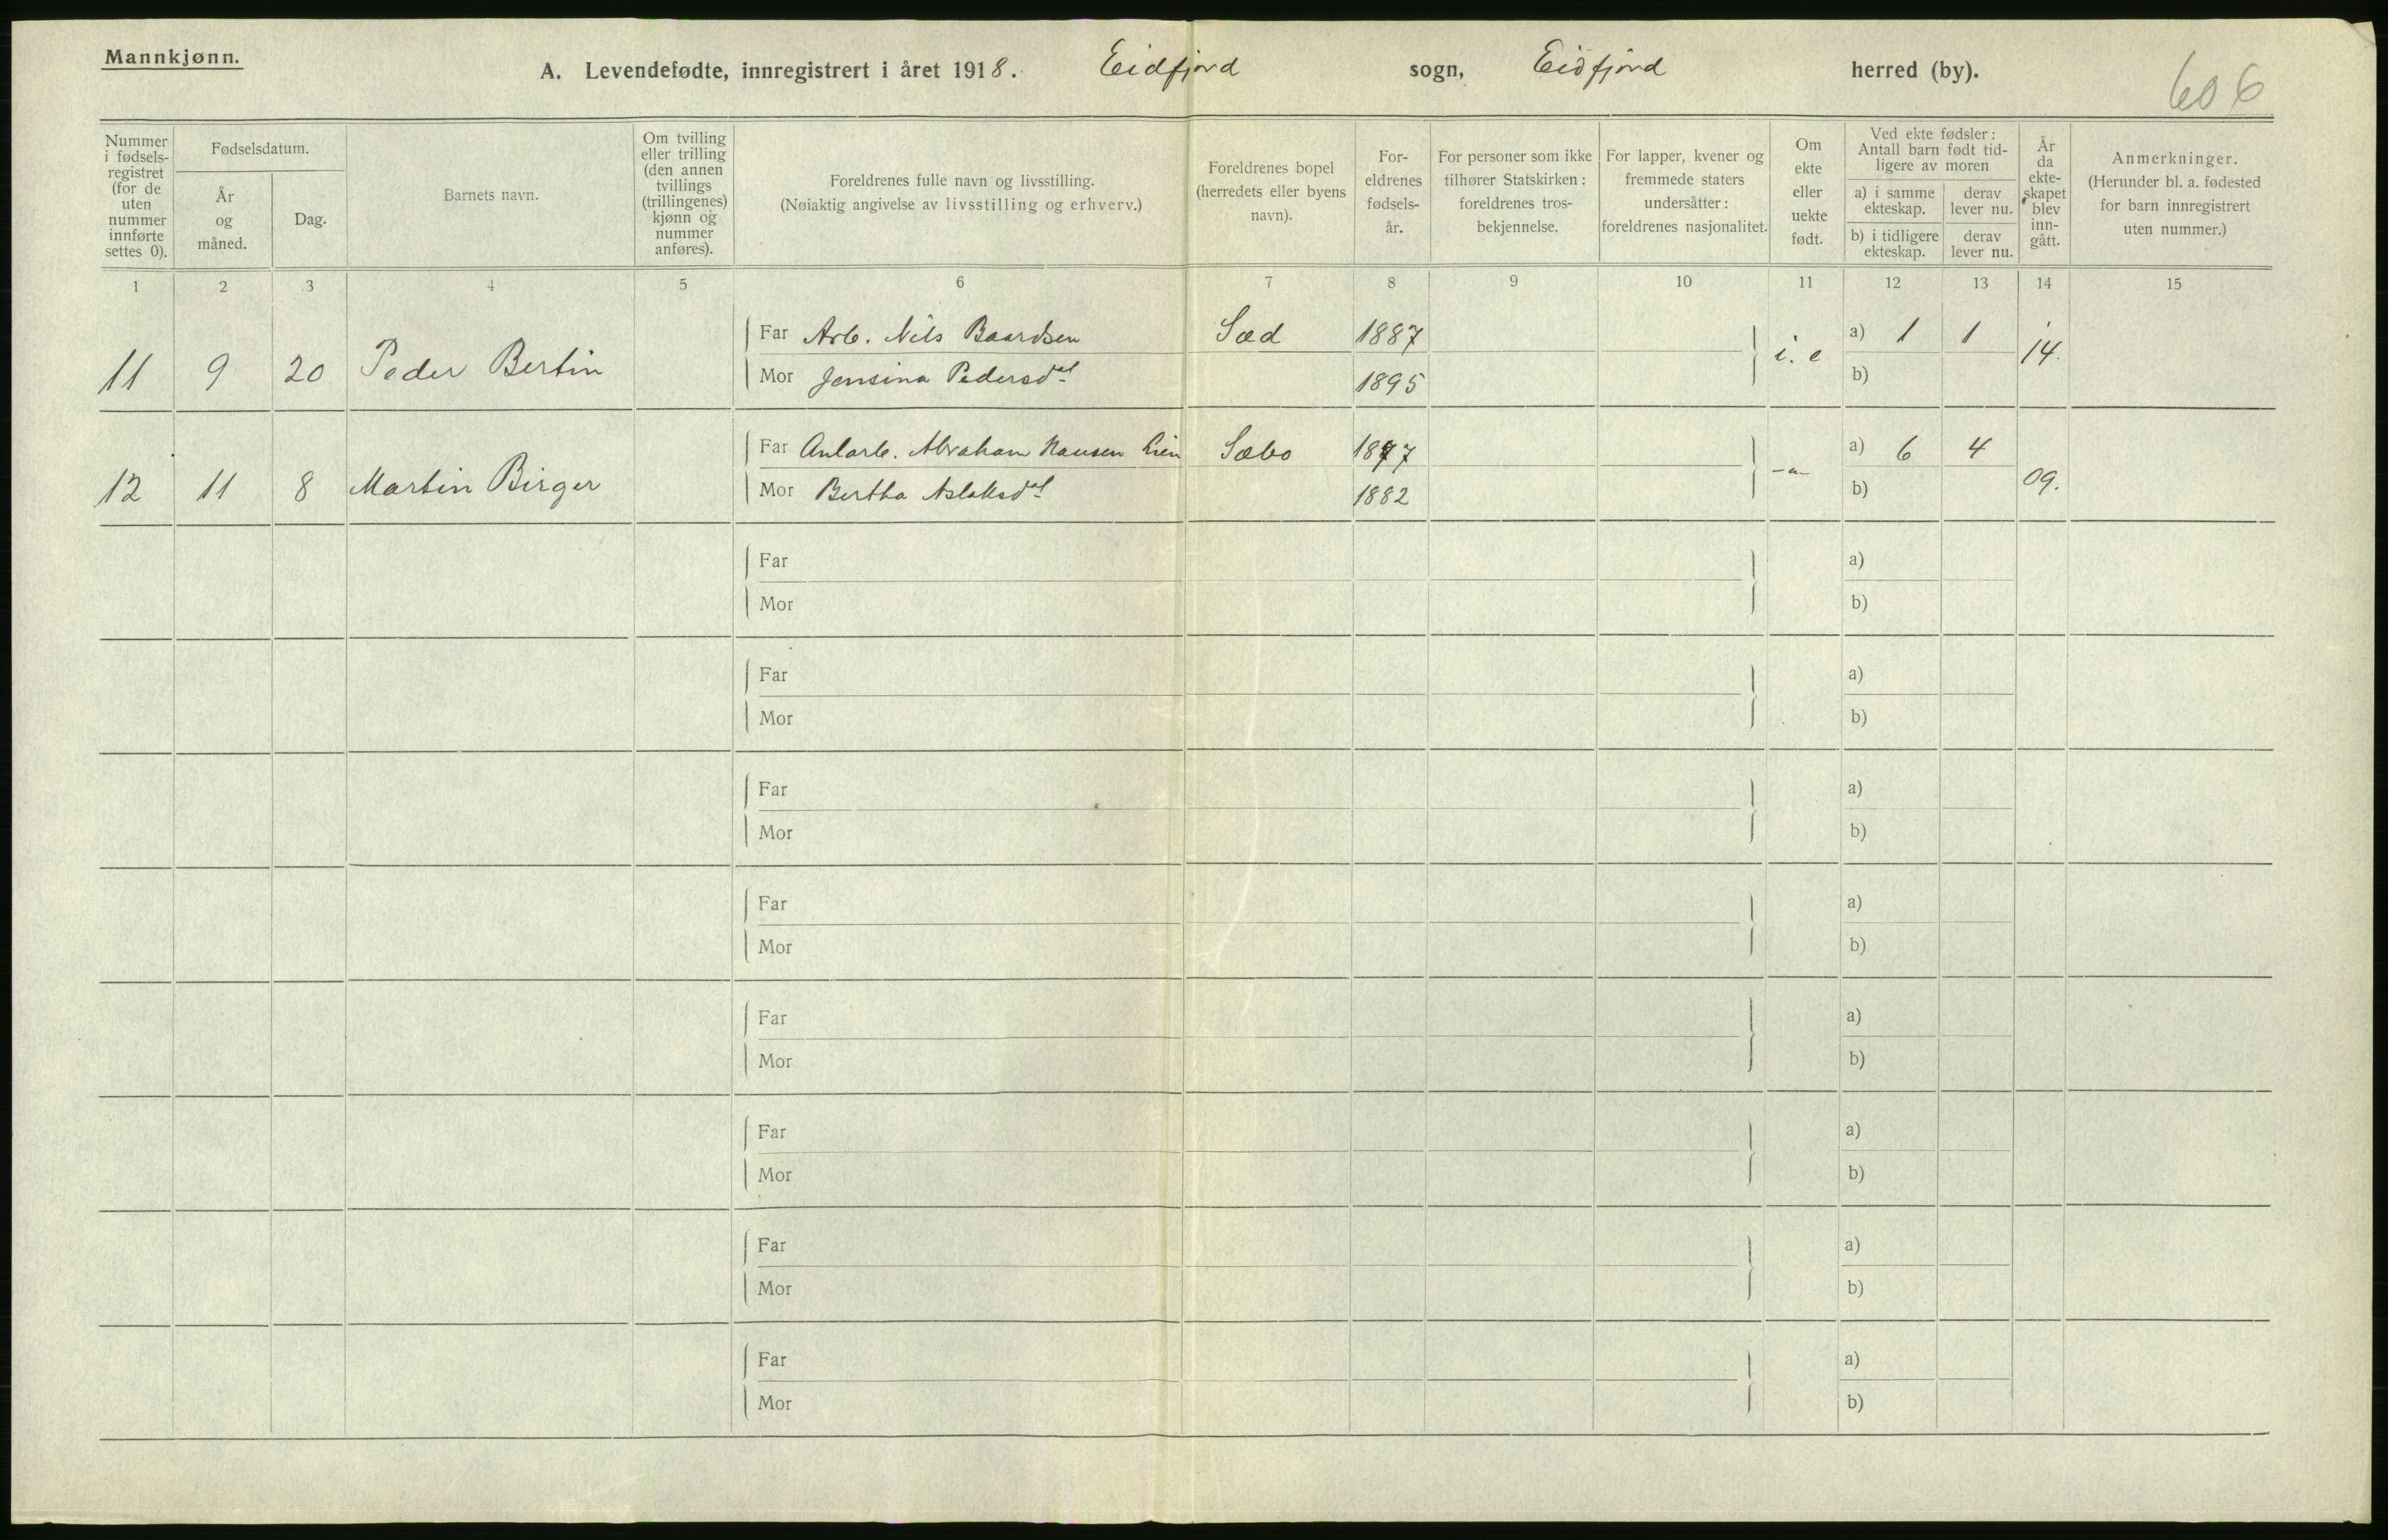 Mannkjønn.
A. Levendefødte, innregistrert i året 1918. Eidfjord sogn, Eidfjord herred (by).
606
Nummer i fødsels- registret (for de uten nummer innførte settes 0).
Fødselsdatum.
År og måned.
Dag.
Barnets navn.
Om tvilling eller trilling (den annen tvillings (trillingenes) kjønn og nummer anføres).
Foreldrenes fulle navn og livsstilling.
(Nøiaktig angivelse av livsstilling og erhverv.)
Foreldrenes bopel (herredets eller byens navn).
For- eldrenes fødsels- år.
For personer som ikke tilhører Statskirken: foreldrenes tros- bekjennelse.
For lapper, kvener og fremmede staters undersåtter: foreldrenes nasjonalitet.
Om ekte eller uekte født.
Ved ekte fødsler: Antall barn født tid- ligere av moren
a) i samme ekteskap.
derav lever nu.
b) i tidligere ekteskap.
derav lever nu.
År da ekte- skapet blev inn- gått.
Anmerkninger.
(Herunder bl. a. fødested for barn innregistrert uten nummer.)
1 2 3 4 5 6 7 8 9 10 11 12 13 14 15
Far Arb. Nils Baardsen Sæd 1887 a) 1 1
11 9 20 Peder Bertin i. e 14.
Mor Jensina Pedersdat 1895 b)
Far Anlarb. Abraham Hansen Lien Sæbo 1877 a) 6 4
12 11 8 Martin Birger -"- 09.
Mor Bertha Aslaksdat 1882 b)
Far a)
Mor b)
Far a)
Mor b)
Far a)
Mor b)
Far a)
Mor b)
Far a)
Mor b)
Far a)
Mor b)
Far a)
Mor b)
Far a)
Mor b)